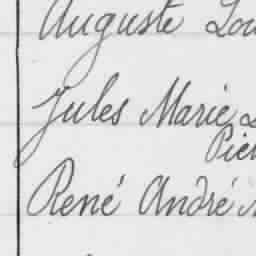 Auguste Lou
Jules Marie
Pier
René André